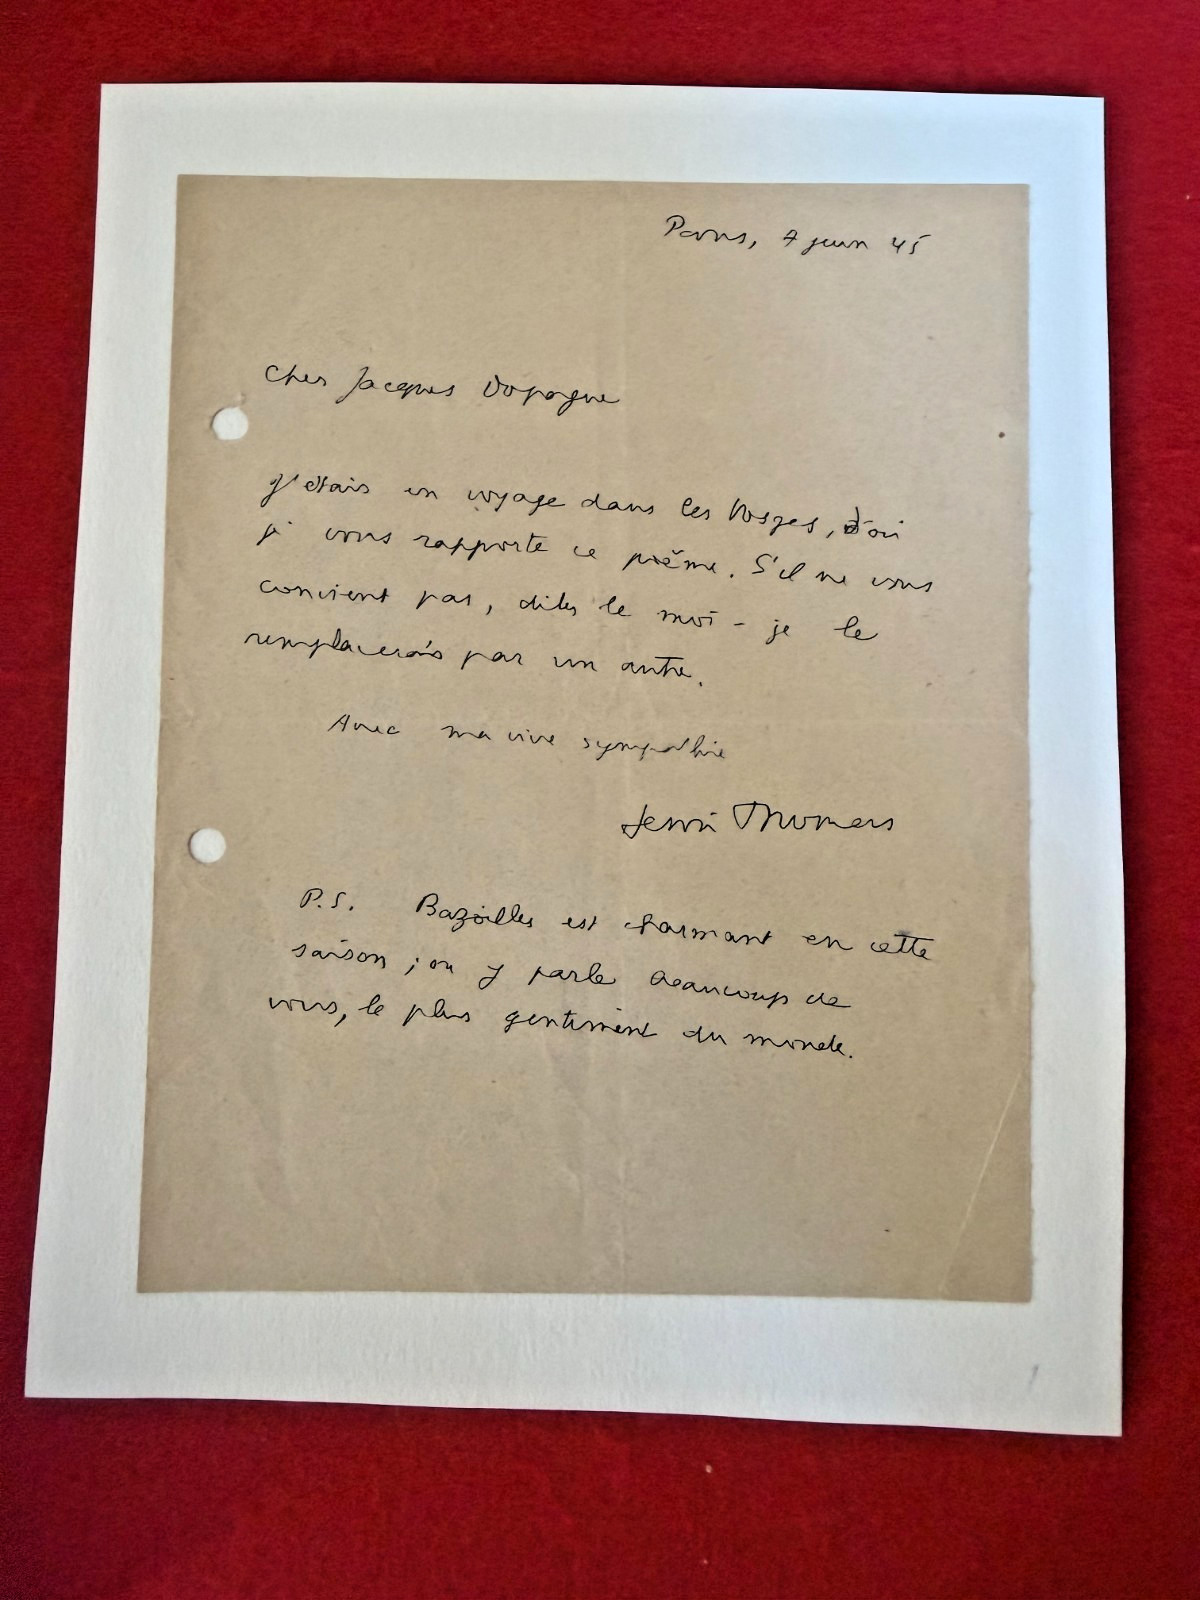 Paris, 7 juin 45
Cher Jacques Dopagne
J'étais en voyage dans les Vosges, d'où
je vous rapporte ce poème. S'il ne vous
convient pas, dites le moi - je le
remplacerais par un autre.
Avec ma vive sympathie
Henri Thomas
P.S. Bazoilles est charmant en cette
saison ; on y parle beaucoup de
vous, le plus gentiment du monde.